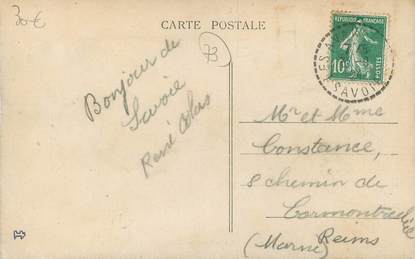 30€
CARTE POSTALE
73
RÉPUBLIQUE FRANÇAISE
10c
POSTES
SAVOIE
Bonjour de
Savoie
René
Mr et Mme
Constance,
8 chemin de
Cormontreuil
Reims
(Marne)